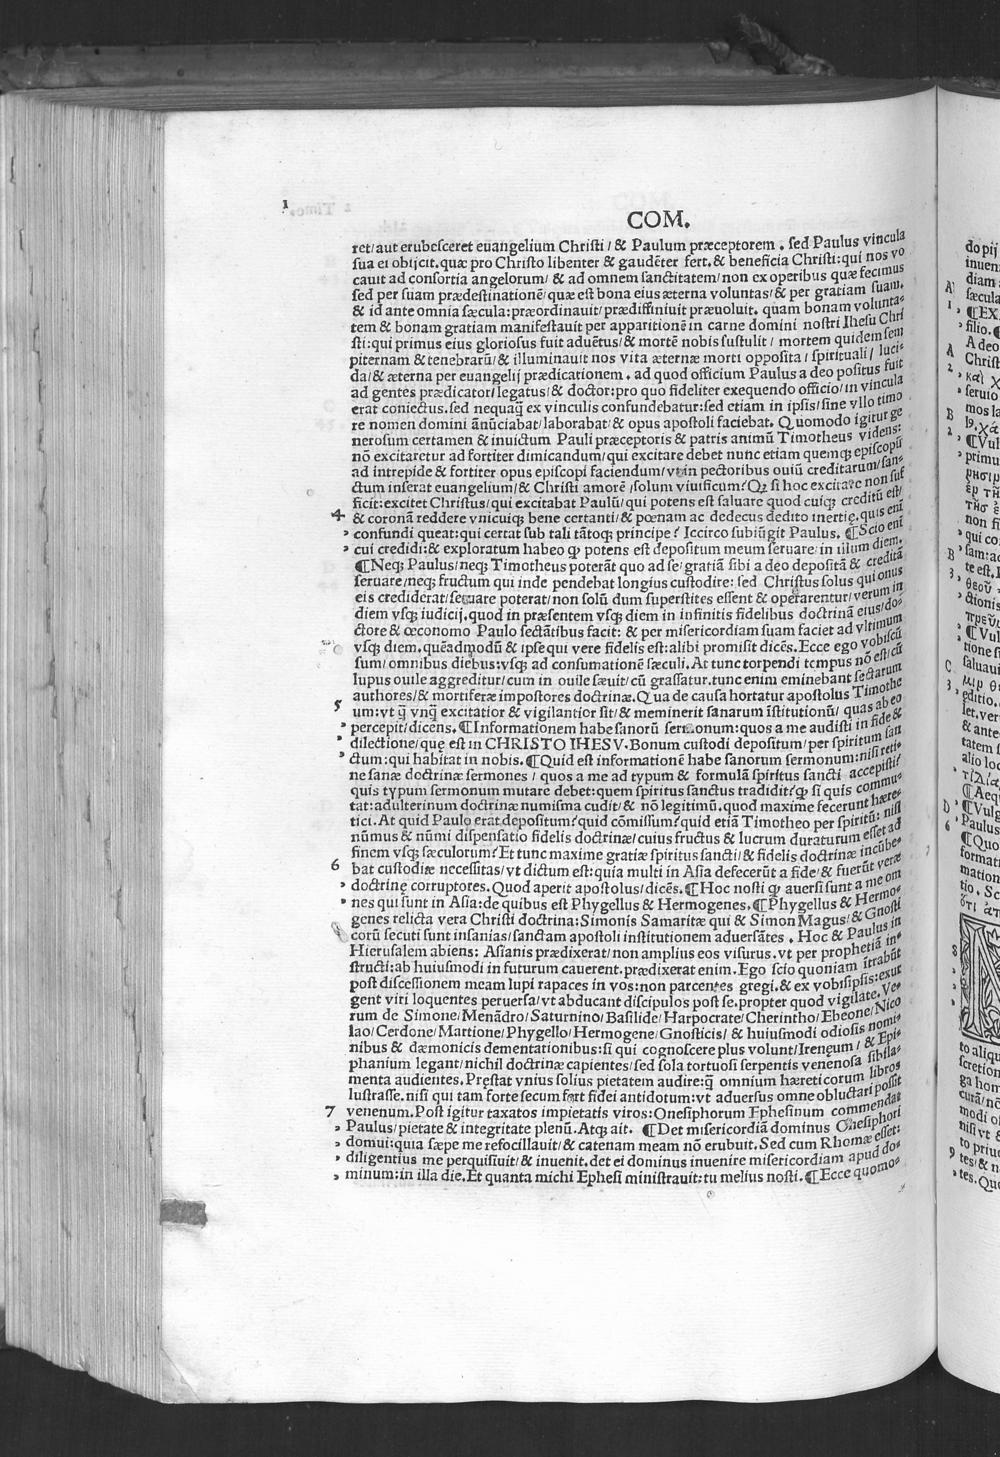 1
COM.
ret/aut erubesceret euangelium Christi/& Paulum præceptorem. sed Paulus vincula
sua ei obijcit. quæ pro Christo libenter & gaudēter fert. & beneficia Christi: qui nos vo
cauit ad consortia angelorum/& ad omnem sanctitatem/non ex operibus quæ fecimus
sed per suam prædestinationē/quæ est bona eius æterna voluntas/& per gratiam suam.
& id ante omnia sæcula: præordinauit/prædiffiniuit præuoluit. quam bonam volunta-
tem & bonam gratiam manifestauit per apparitionē in carne domini nostri Ihesu Chri
sti: qui primus eius gloriosus fuit aduētus/& mortē nobis sustulit/mortem quidem sem
piternam & tenebrarū/& illuminauit nos vita æternæ morti opposita/spirituali/luci-
da/& æterna per euangelij prædicationem. ad quod officium Paulus a deo positus fuit
ad gentes prædicator/legatus/& doctor: pro quo fideliter exequendo officio/in vincula
erat coniectus. sed nequaꝗ̃ ex vinculis confundebatur: sed etiam in ipsis/sine vllo timo
re nomen domini ānūciabat/laborabat/& opus apostoli faciebat. Quomodo igitur ge
nerosum certamen & inuictum Pauli præceptoris & patris animū Timotheus videns:
nō excitaretur ad fortiter dimicandum/qui excitare debet nunc etiam quemqꝫ episcopū
ad intrepide & fortiter opus episcopi faciendum/vt in pectoribus ouiū creditarum/san-
ctum inserat euangelium/& Christi amorē/solum viuificum? Qꝫ si hoc excitare non suf
ficit: excitet Christus/qui excitabat Paulū/qui potens est saluare quod cuiqꝫ creditū est/
4 & coronā reddere vnicuiqꝫ bene certanti/& pœnam ac dedecus dedito inertię. quis eni
, confundi queat: qui certat sub tali tātoqꝫ principe? Iccirco subiūgit Paulus. ¶Scio eni
, cui credidi: & exploratum habeo ꝙ potens est depositum meum seruare/in illum diem.
¶Neqꝫ Paulus/neqꝫ Timotheus poterāt quo ad se/gratiā sibi a deo depositā & creditā
seruare/neqꝫ fructum qui inde pendebat longius custodire: sed Christus solus qui onus
eis crediderat/seruare poterat/non solū dum superstites essent & operarentur/verum in
diem vsqꝫ iudicij. quod in præsentem vsqꝫ diem in infinitis fidelibus doctrinā eius/do-
ctore & œconomo Paulo sectātibus facit: & per misericordiam suam faciet ad vltimum
vsqꝫ diem. quēadmodū & ipse qui vere fidelis est: alibi promisit dicēs. Ecce ego vobiscū
sum/omnibus diebus: vsqꝫ ad consumationē sæculi. At tunc torpendi tempus nō est/cū
lupus ouile aggreditur/cum in ouile sæuit/cū grassatur. tunc enim eminebant sectarum
authores/& mortiferæ impostores doctrinæ. Qua de causa hortatur apostolus Timothe
5 um: vt ꝗ̃ vnꝗ̃ excitatior & vigilantior sit/& meminerit sanarum īstitutionū/quas ab eo
, percepit/dicens. ¶Informationem habe sanorū sermonum: quos a me audisti in fide &
, dilectione/quę est in CHRISTO IHESV. Bonum custodi depositum/per spiritum san
, ctum: qui habitat in nobis. ¶Quid est informationē habe sanorum sermonum: nisi reti-
ne sanæ doctrinæ sermones/quos a me ad typum & formulā spiritus sancti accepisti?
quis typum sermonum mutare debet: quem spiritus sanctus tradidit? ꝙ si quis commu-
tat: adulterinum doctrinæ numisma cudit/& nō legitimū. quod maxime fecerunt hære-
tici. At quid Paulo erat depositum? quid cōmissum? quid etiā Timotheo per spiritū: nisi
nūmus & nūmi dispensatio fidelis doctrinæ/cuius fructus & lucrum duraturum esset ad
finem vsqꝫ sæculorum? Et tunc maxime gratiæ spiritus sancti/& fidelis doctrinæ incūbe-
6 bat custodiæ necessitas/vt dictum est: quia multi in Asia defecerūt a fide/& fuerūt veræ
, doctrinę corruptores. Quod aperit apostolus/dicēs. ¶Hoc nosti ꝙ auersi sunt a me om
, nes qui sunt in Asia: de quibus est Phygellus & Hermogenes. ¶Phygellus & Hermo-
genes relicta vera Christi doctrina: Simonis Samaritæ qui & Simon Magus/& Gnosti
corū secuti sunt insanias/sanctam apostoli institutionem aduersātes. Hoc & Paulus in
Hierusalem abiens: Asianis prædixerat/non amplius eos visurus. vt per prophetiā in-
structi: ab huiusmodi in futurum cauerent. prædixerat enim. Ego scio quoniam ītrabūt
post discessionem meam lupi rapaces in vos: non parcentes gregi. & ex vobisipsis: exur
gent viri loquentes peruersa/vt abducant discipulos post se. propter quod vigilate. Ve-
rum de Simone/Menādro/Saturnino/Basilide/Harpocrate/Cherintho/Ebeone/Nico
lao/Cerdone/Martione/Phygello/Hermogene/Gnosticis/& huiusmodi odiosis nomi-
nibus & dæmonicis dementationibus: si qui cognoscere plus volunt/Ireneum/& Epi-
phanium legant/nichil doctrinæ capientes/sed sola tortuosi serpentis venenosa sibila-
menta audientes. Pręstat vnius solius pietatem audire: ꝗ̃ omnium hæreticorum libros
lustrasse. nisi qui tam forte secum fert fidei antidotum: vt aduersus omne obluctari possit
7 venenum. Post igitur taxatos impietatis viros: Onesiphorum Ephesinum commendat
, Paulus/pietate & integritate plenū. Atqꝫ ait. ¶Det misericordiā dominus Onesiphori
, domui: quia sæpe me refocillauit/& catenam meam nō erubuit. Sed cum Rhomæ esset:
, diligentius me perquisiuit/& inuenit. det ei dominus inuenire misericordiam apud do-
, minum: in illa die. Et quanta michi Ephesi ministrauit: tu melius nosti. ¶Ecce quomo-